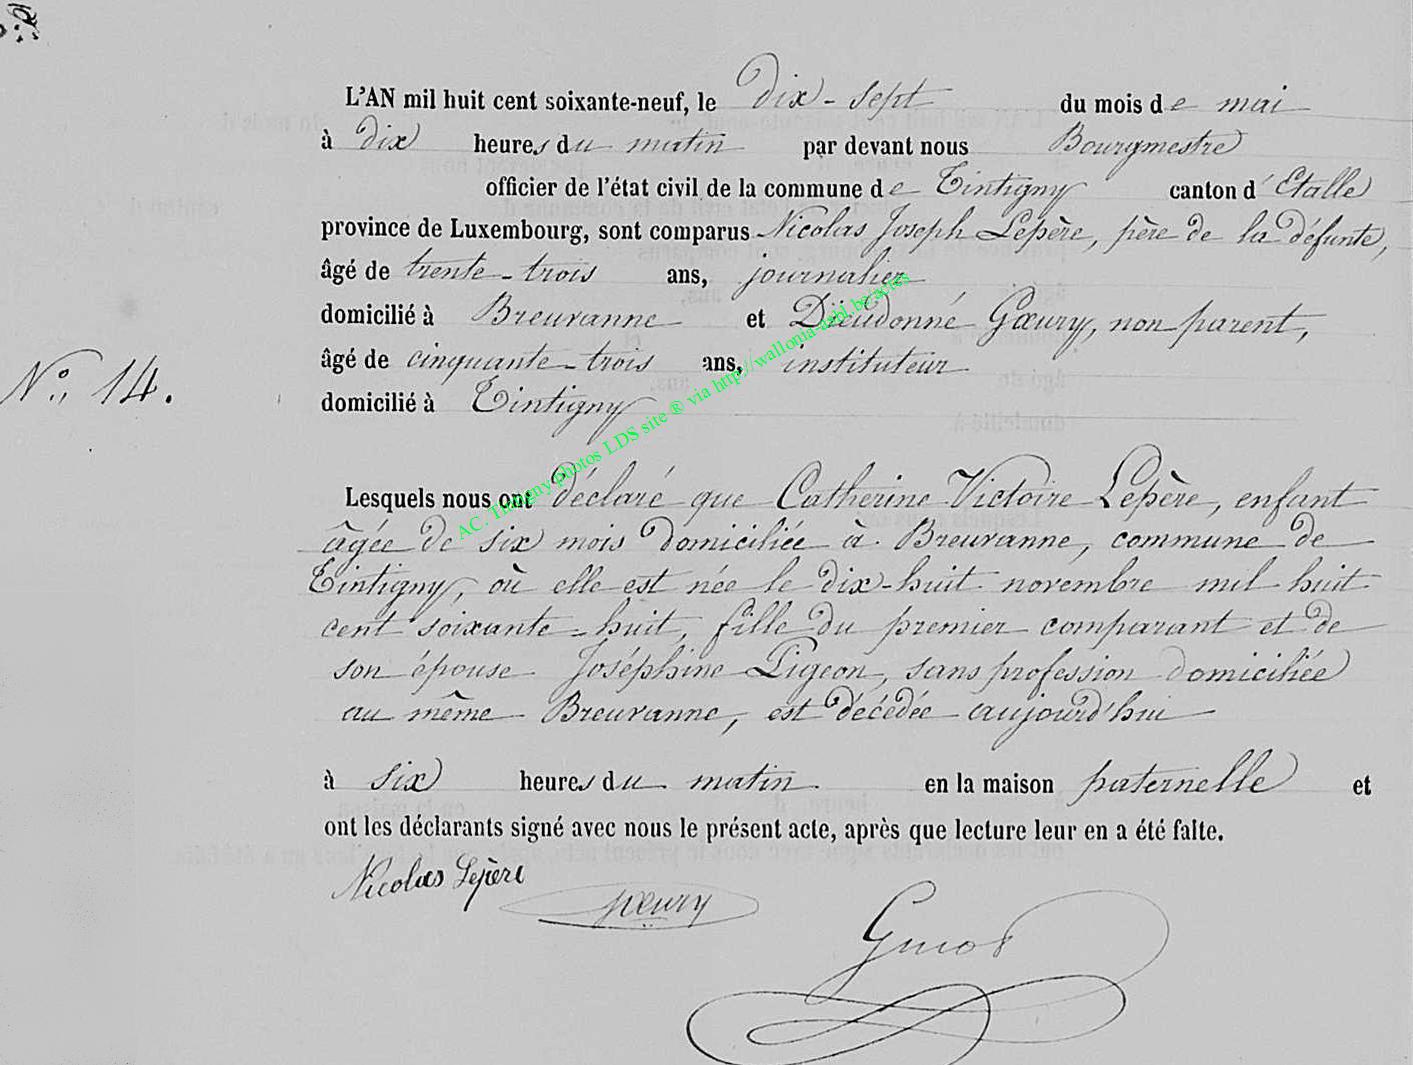 L'AN mil huit cent soixante-neuf, le dix-sept du mois de mai
à dix heures du matin par devant nous Bourgmestre
officier de l'état civil de la commune de Tintigny canton d'Etalle
province de Luxembourg, sont comparus Nicolas Joseph Lepère, père de la défunte,
âgé de trente-trois ans, journalier
domicilié à Breuvanne et Dieudonné Gœury, non parent,
âgé de cinquante-trois ans, instituteur
N° 14.
domicilié à Tintigny
Lesquels nous ont déclaré que Catherine Victoire Lepère, enfant
âgée de six mois domiciliée à Breuvanne, commune de
Tintigny, où elle est née le dix-huit novembre mil huit
cent soixante-huit, fille du premier comparant et de
son épouse Joséphine Pigeon, sans profession domiciliée
au même Breuvanne, est décédée aujourd'hui
à six heures du matin en la maison paternelle et
ont les déclarants signé avec nous le présent acte, après que lecture leur en a été faite.
Nicolas Lepère
gœury
AC. Tintigny photos LDS site ® via http://wallonia-asbl.be/actes